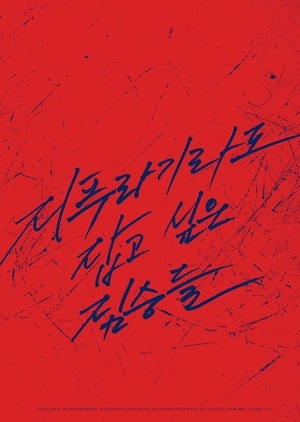 지푸라기라도
잡고 싶은
짐승들